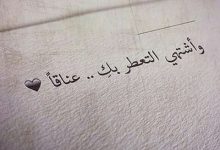 وأشتهي التعطر بك .. عناقاً ♥